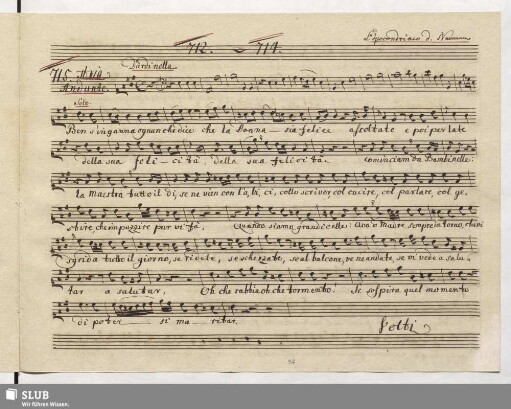 L'Ipocondriaco d. Naumann
712. – 714.
715. Aria Dardinella
Andante
Solo
Ben s'inganna ognun che dice che la Donna sia felice ascoltate e poi parlate
della sua feli-ci-tà della sua felicità. Cominciam da Bambinelle:
la Maestra tutto il dì, se ne vien con l'a, b, ci, collo scriver, col cucire, col parlare, col ge-
stire, che impazzire pur vi fà. Quando siamo grandicelle: Ava o Madre sempre intorno, che vi
sgrida tutto il giorno, se ridete, se scherzate, se al balcone, ve ne andate, se vi vede a salu-
tar a salutar, Oh che rabbia oh che tormento! Si sospira quel momento
di poter si ma-ritar.
Volti
SLUB
Wir führen Wissen.